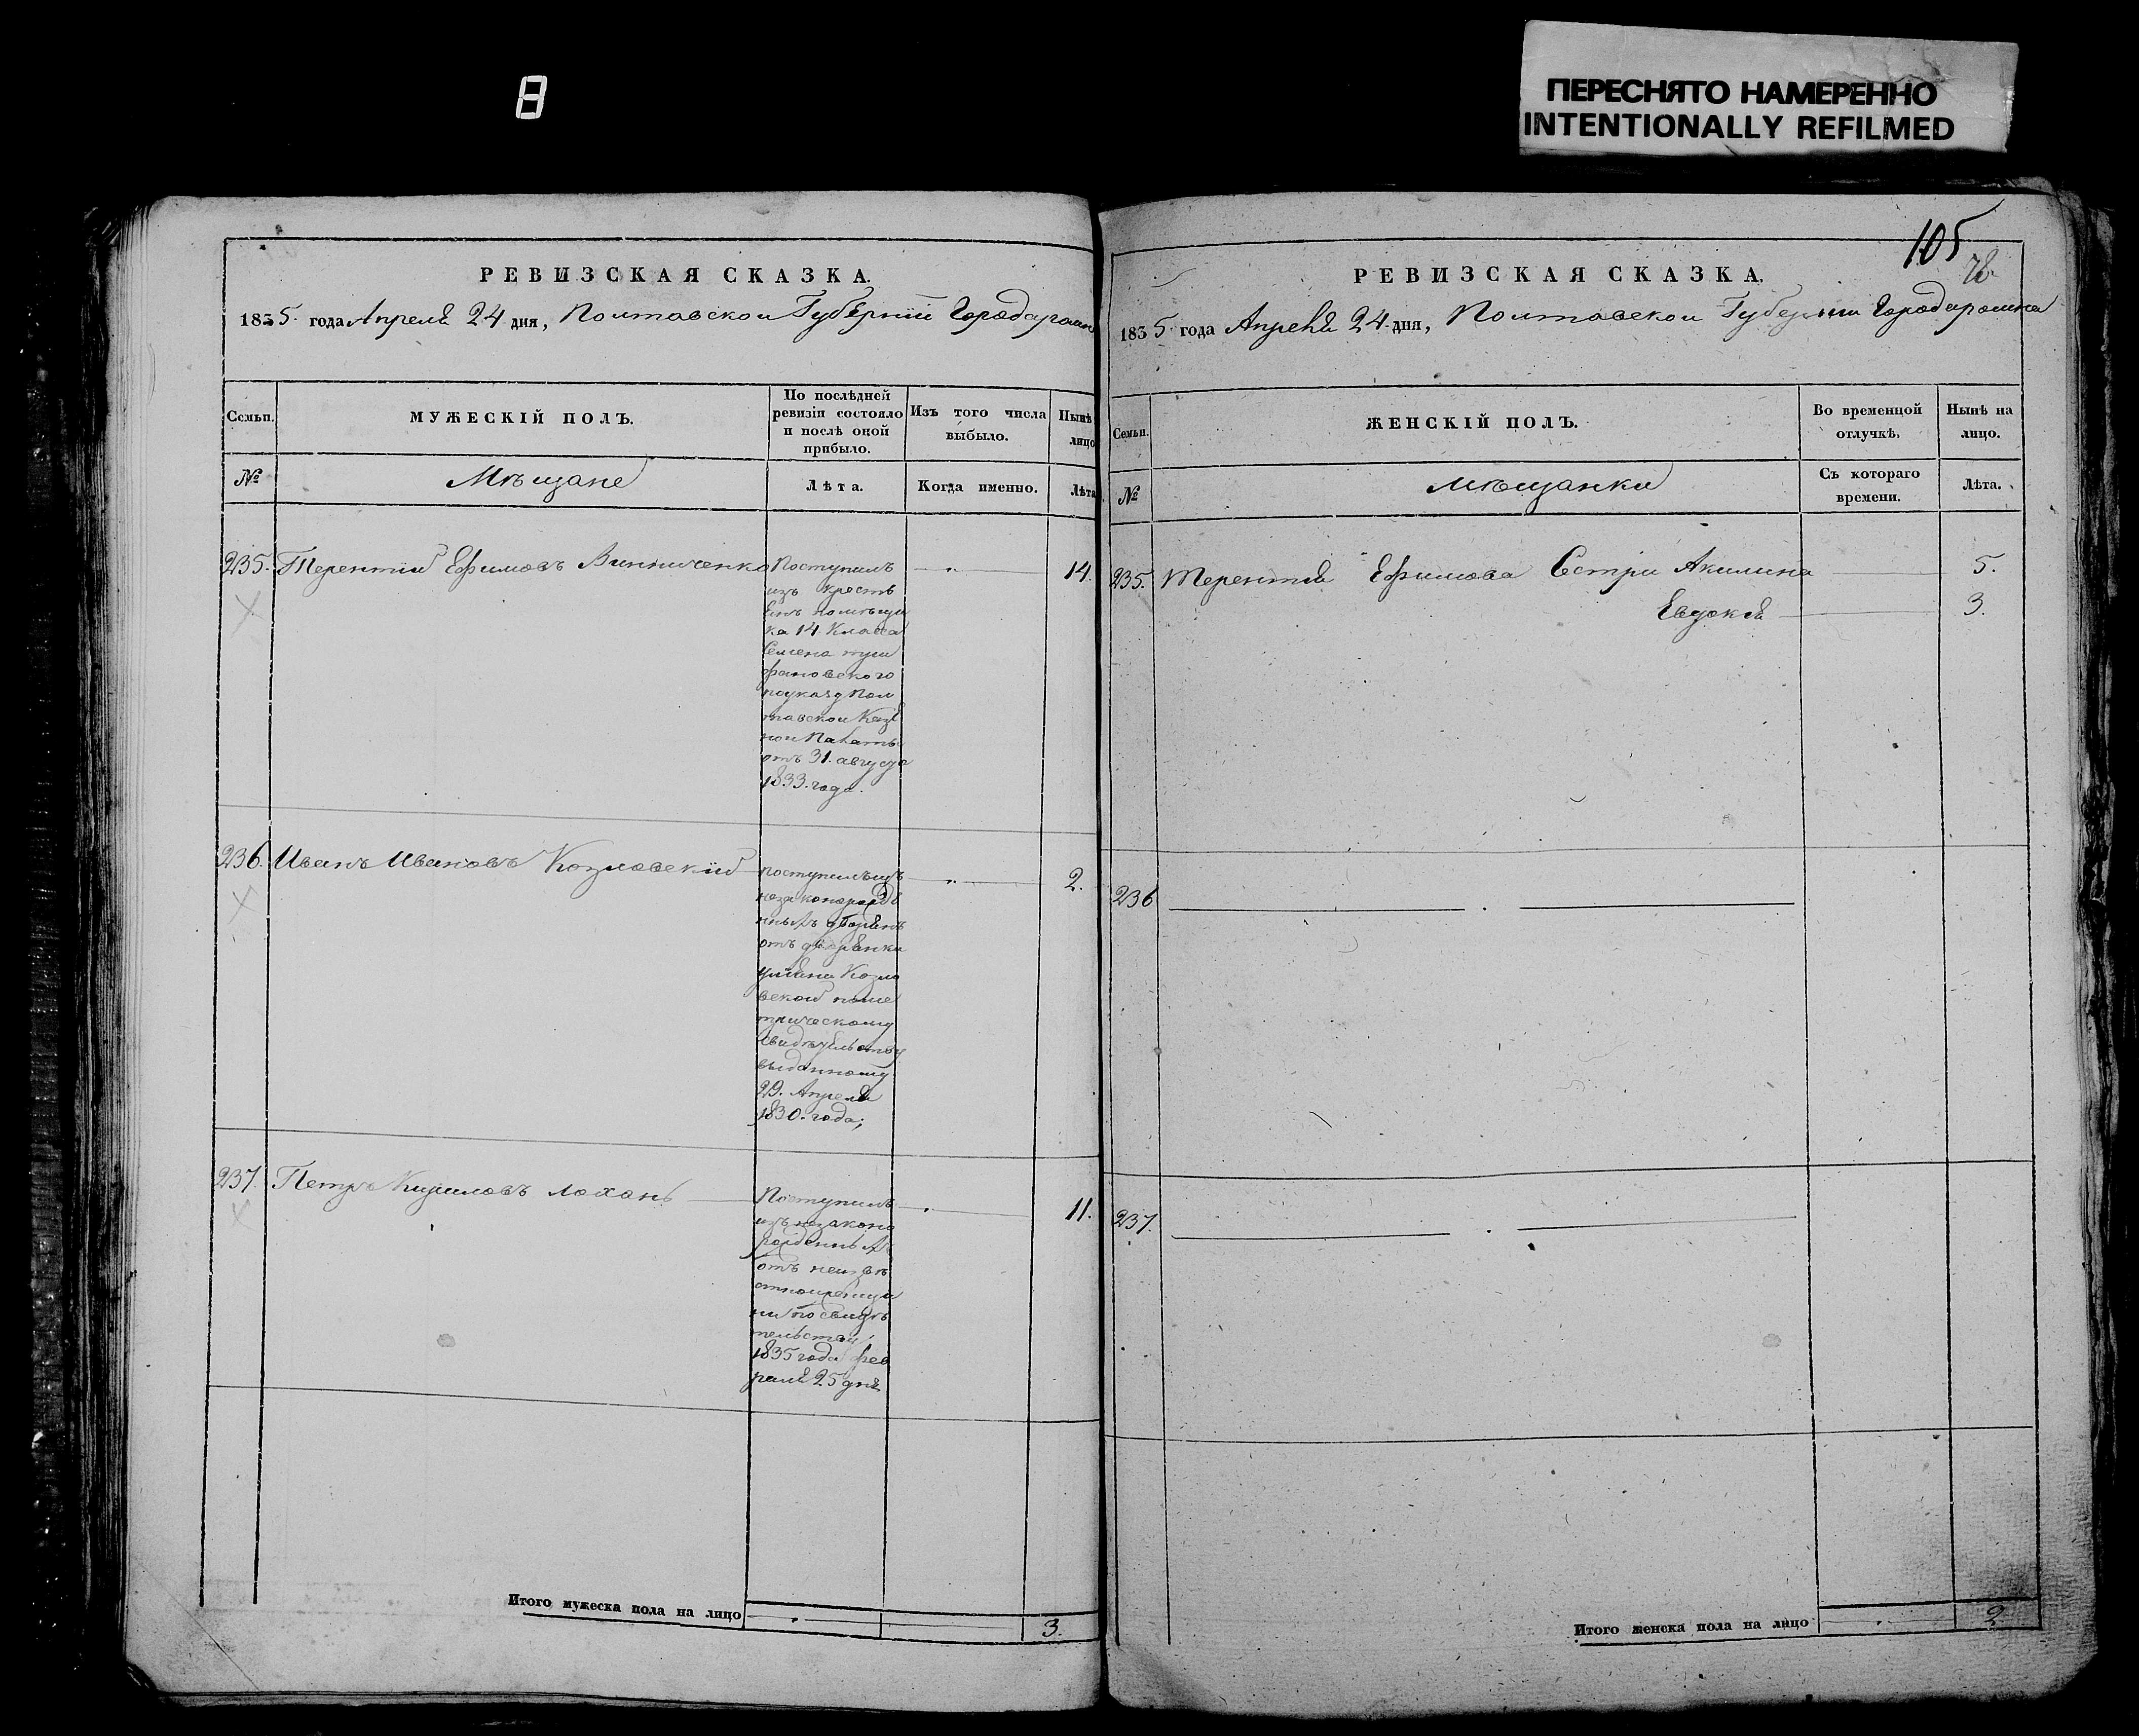 8
ПЕРЕСНЯТО НАМЕРЕННО
INTENTIONALLY REFILMED
РЕВИЗСКАЯ СКАЗКА.
1835. года Апреля 24 дня, Полтавской Губернии Города
Семьи.
МУЖЕСКІЙ ПОЛЪ.
По послѣдней
ревизіи состояло
и послѣ оной
прибыло.
Изъ того числа
выбыло.
Нынѣ
лицо
№
Мѣщане
Лѣта.
Когда именно.
Лѣта
235. Терентий Ефимовъ Винниченко
Поступилъ
изъ кресть
янъ помѣщи
ка 14 Класса
Семена
фановского
поуказу Пол
тавской Казе
ной Палаты
отъ 31. августа
1833. года.
14.
236. Иванъ Ивановъ Козловский
поступилъ изъ
незаконорожде
нныхъ
отъ дворянки
Козло
вской поме
трическому
свидѣтельству
выданному
29. Апреля
1830. года;
2.
237. Петръ Кириловъ Лохань
Поступилъ
изъ незакона
рожденныхъ
отъ неизвѣ
стной
по свидѣ
тельству
1835 года фев
раля 25 дня
11.
Итого мужеска пола на лицо
3.
105
78.
РЕВИЗСКАЯ СКАЗКА.
1835 года Апреля 24 дня, Полтавской Губернии Города
Семьи.
ЖЕНСКІЙ ПОЛЪ.
Во временной
отлучкѣ.
Нынѣ на
лицо.
№
Мѣщанки
Съ котораго
времени.
Лѣта.
235. Терентия Ефимова Сестры Акилина 5.
Евдокия 3.
236
237.
Итого женска пола на лицо
2